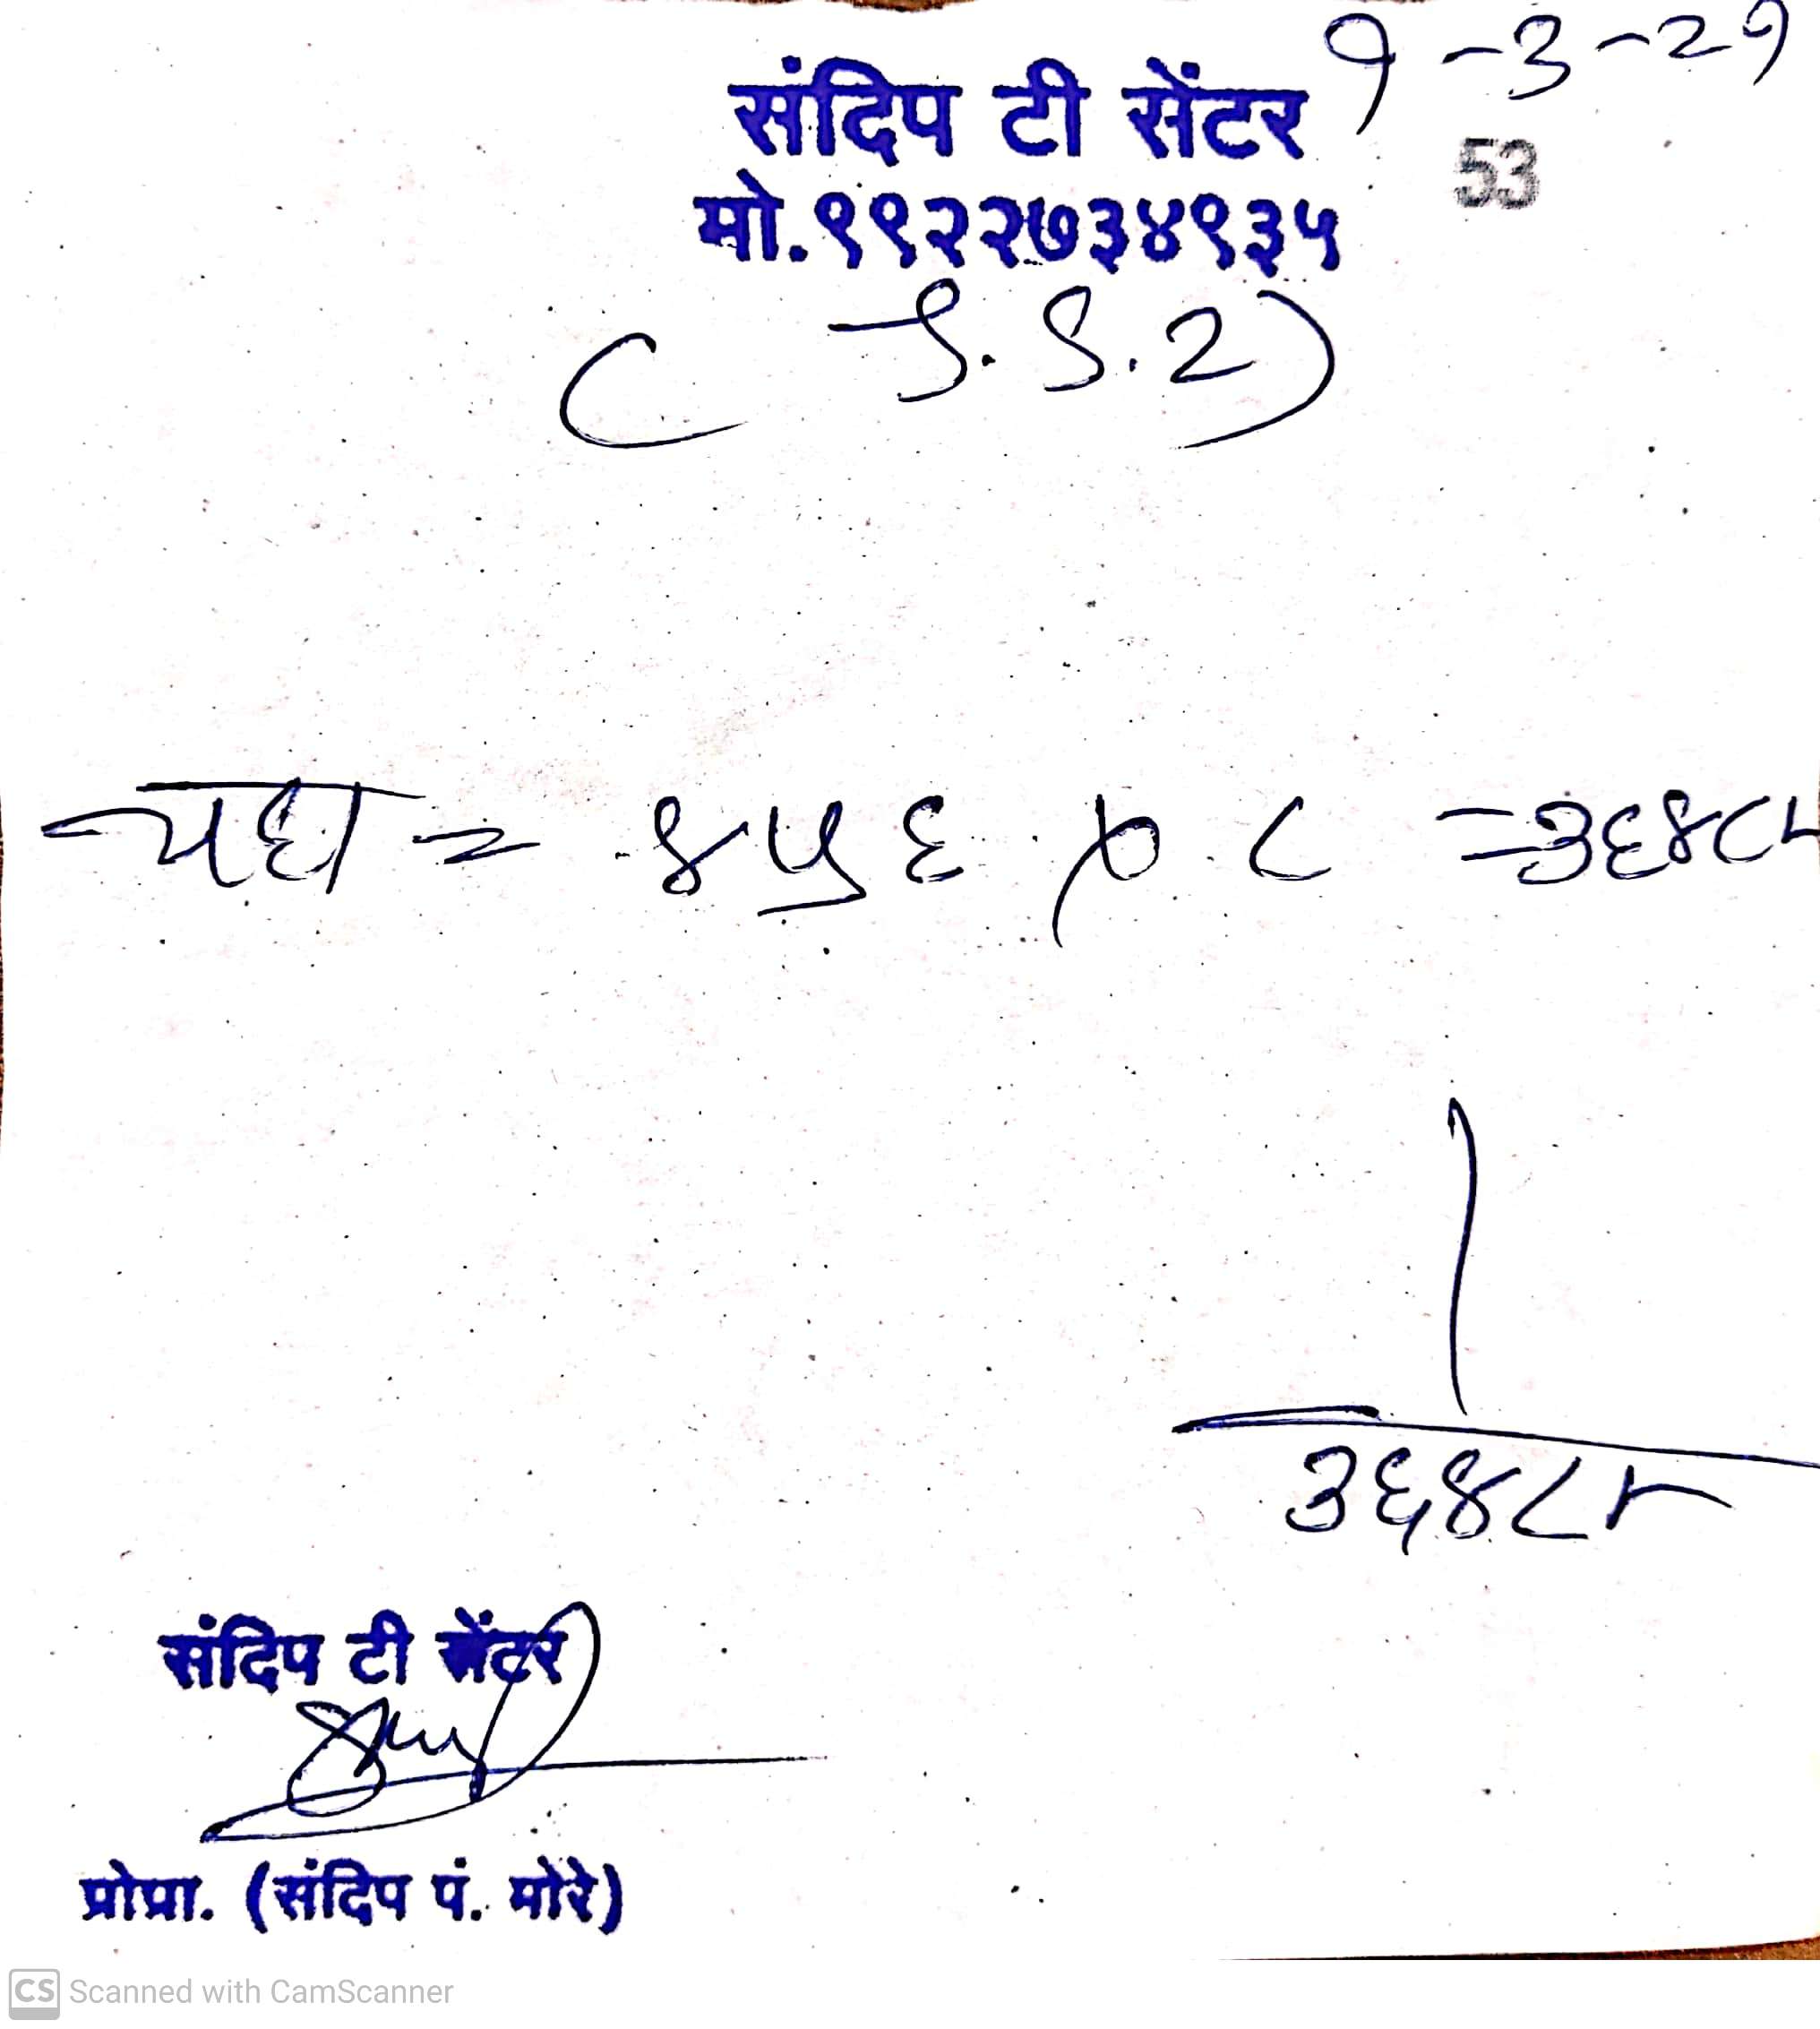 १-3-2१
संदिप टी सेंटर
53
मो.९९२२७३४९३५
( J. S. 2)
चहा = ४५६ x ८ = ३६४८
३६४८
संदिप टी सेंटर
प्रोप्रा. (संदिप पं. मोरे)
CS Scanned with CamScanner